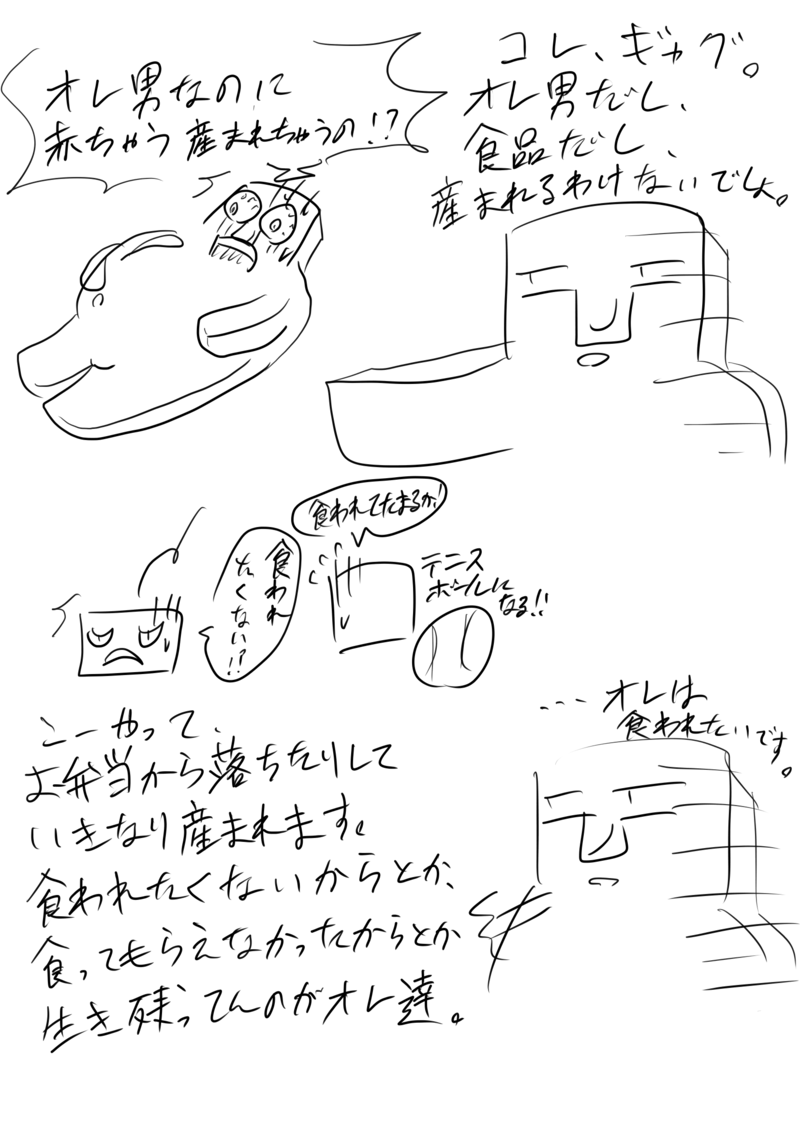 コレ、ギャグ。
オレ男だし、
食品だし、
産まれるわけないでしょ。
オレ男なのに
赤ちゃう産まれちゃうの!?
食われてたまるか!
テニス
ボールに
なる!!
食われ
たくない!?
…オレは
食われたいです。
こーやって、
お弁当から落ちたりして
いきなり産まれます。
食われたくないからとか、
食ってもらえなかったからとか
生き残ってんのがオレ達。